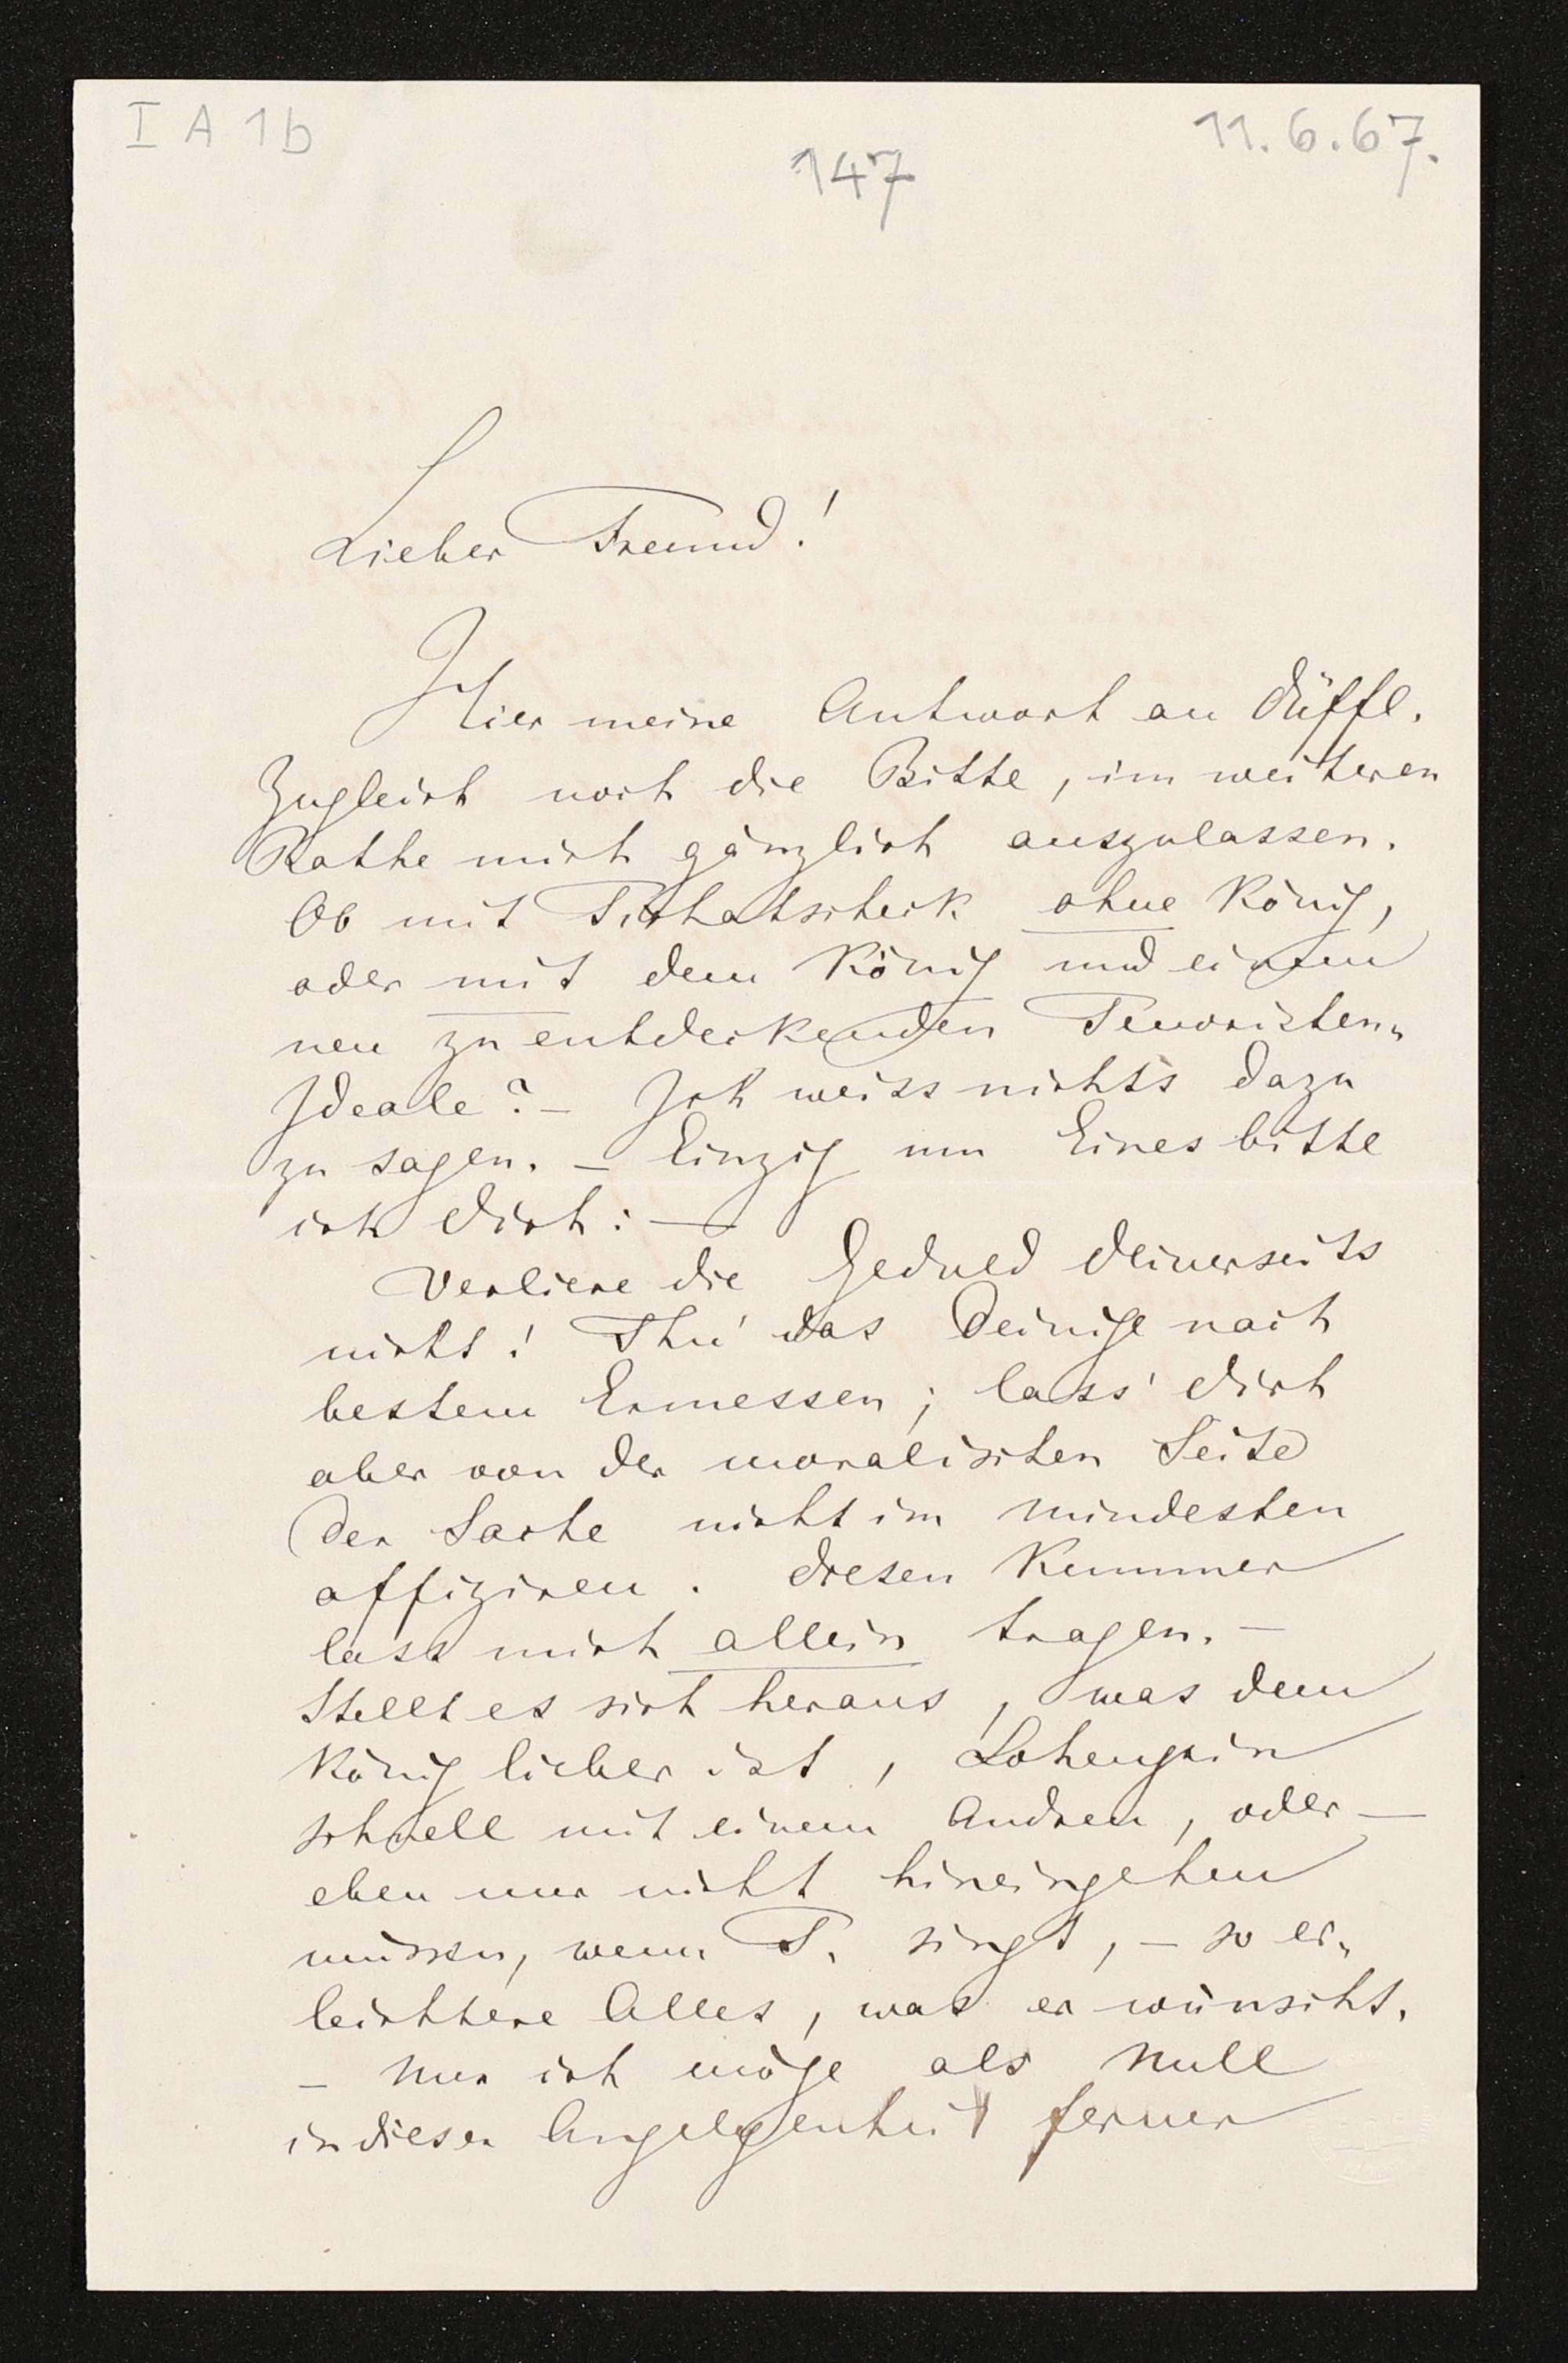 I A 1b
147
11.6.67.
Lieber Freund!
Hier meine Antwort an Düffl.
Zugleich noch die Bitte, im weiteren
Rathe mich gänzlich auszulassen.
Ob mit Tichatscheck ohne König,
oder mit dem König und einem
neu zu entdeckenden Tenoristen-
Ideale? – Ich weiss nichts dazu
zu sagen. – Einzig um Eines bitte
ich Dich: –
Verliere die Geduld Deinerseits
nicht! Thu' das Deinige nach
bestem Ermessen; lass' Dich
aber von der moralischen Seite
der Sache nicht im Mindesten
affiziren. Diesen Kummer
lass mich allein tragen. –
Stellt es sich heraus, was dem
König lieber ist, Lohengrin
schnell mit einem Andren, oder –
eben nur nicht hineingehen
müssen, wenn T. singt, – so er-
leichtere Alles, was er wünscht.
– Nur ich möge als Null
in dieser Angelegenheit ferner